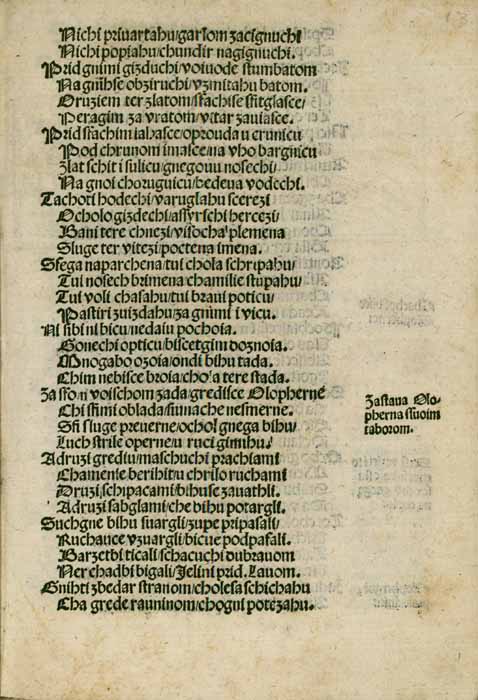 Nichi priuartahu/garlom zacignuchi
Nichi popiahu/chundir nagignuchi.
Prid gnimi gizduchi/voiuode stumbatom
Na gnihse obziruchi/vzmitahu batom.
Oruziem ter zlatom/ sfachise sfitglasce/
Peragim za vratom/vitar zauiasce.
Prid sfachim iahasce/oprouda u erunicu
Pod chrunom imasce/na vho bargnicu
Zlat schit i sulicu/gnegouu nosechi/
Na gnoi chozuguicu/bedeua vodechi.
Tachoti hodechi/varuglahu scerezi
Ocholo gizdechi/assyrschi hercezi/
Bani tere chnezi/visocha plemena
Sluge ter vitezi/poctena imena.
Sfega naparchena/tui chola schripahu/
Tui nosech brimena chamilie stupahu/
Tui voli chasahu/tui braui poticu/
Pastiri zuizdahu/za gnimi i vicu.
Ni sibi ni bicu/nedaiu pochoia.
Gonechi opticu/biscetgim doznoia.
Mnogabo ozoia/ondi bihu tada.
Chim nebisce broia/choza tere stada.
Za sfom voischom zada/gredisce Olopherne
Chi sfimi oblada/siunache nesmerne.
Sfi sluge preuerne/ochol gnega bihu/
Luch strile operne/u ruci gimihu/
A druzi grediu/maschuchi prachiami
Chamenie berihit/u chrilo ruchami
Druzi/schipacami/bihuse zauathli.
A druzi sabglami/che bihu potargli.
Suchgne bihu suargli/zupe pripasali/
Ruchauce vzuargli/bicue podpasali.
Barzetbi ticali/schacuchi dubrauom
Ner chadbi bigali/Jelini prid. Lauom.
Gnihti zbedar stranom/cholesa schichahu
Cha grede rauninom/chogni potezahu.
Zastaua Olo-
pherna ssuoim
taborom.